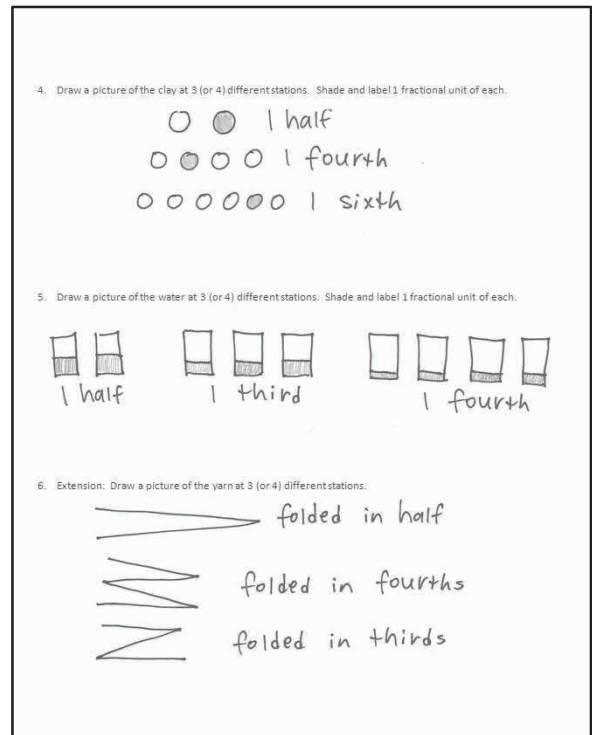 4. Draw a picture of the clay at 3 (or 4) different stations. Shade and label 1 fractional unit of each.
1 half
1 fourth
1 sixth
5. Draw a picture of the water at 3 (or 4) different stations. Shade and label 1 fractional unit of each.
1 half 1 third 1 fourth
6. Extension: Draw a picture of the yarn at 3 (or 4) different stations.
folded in half
folded in fourths
folded in thirds